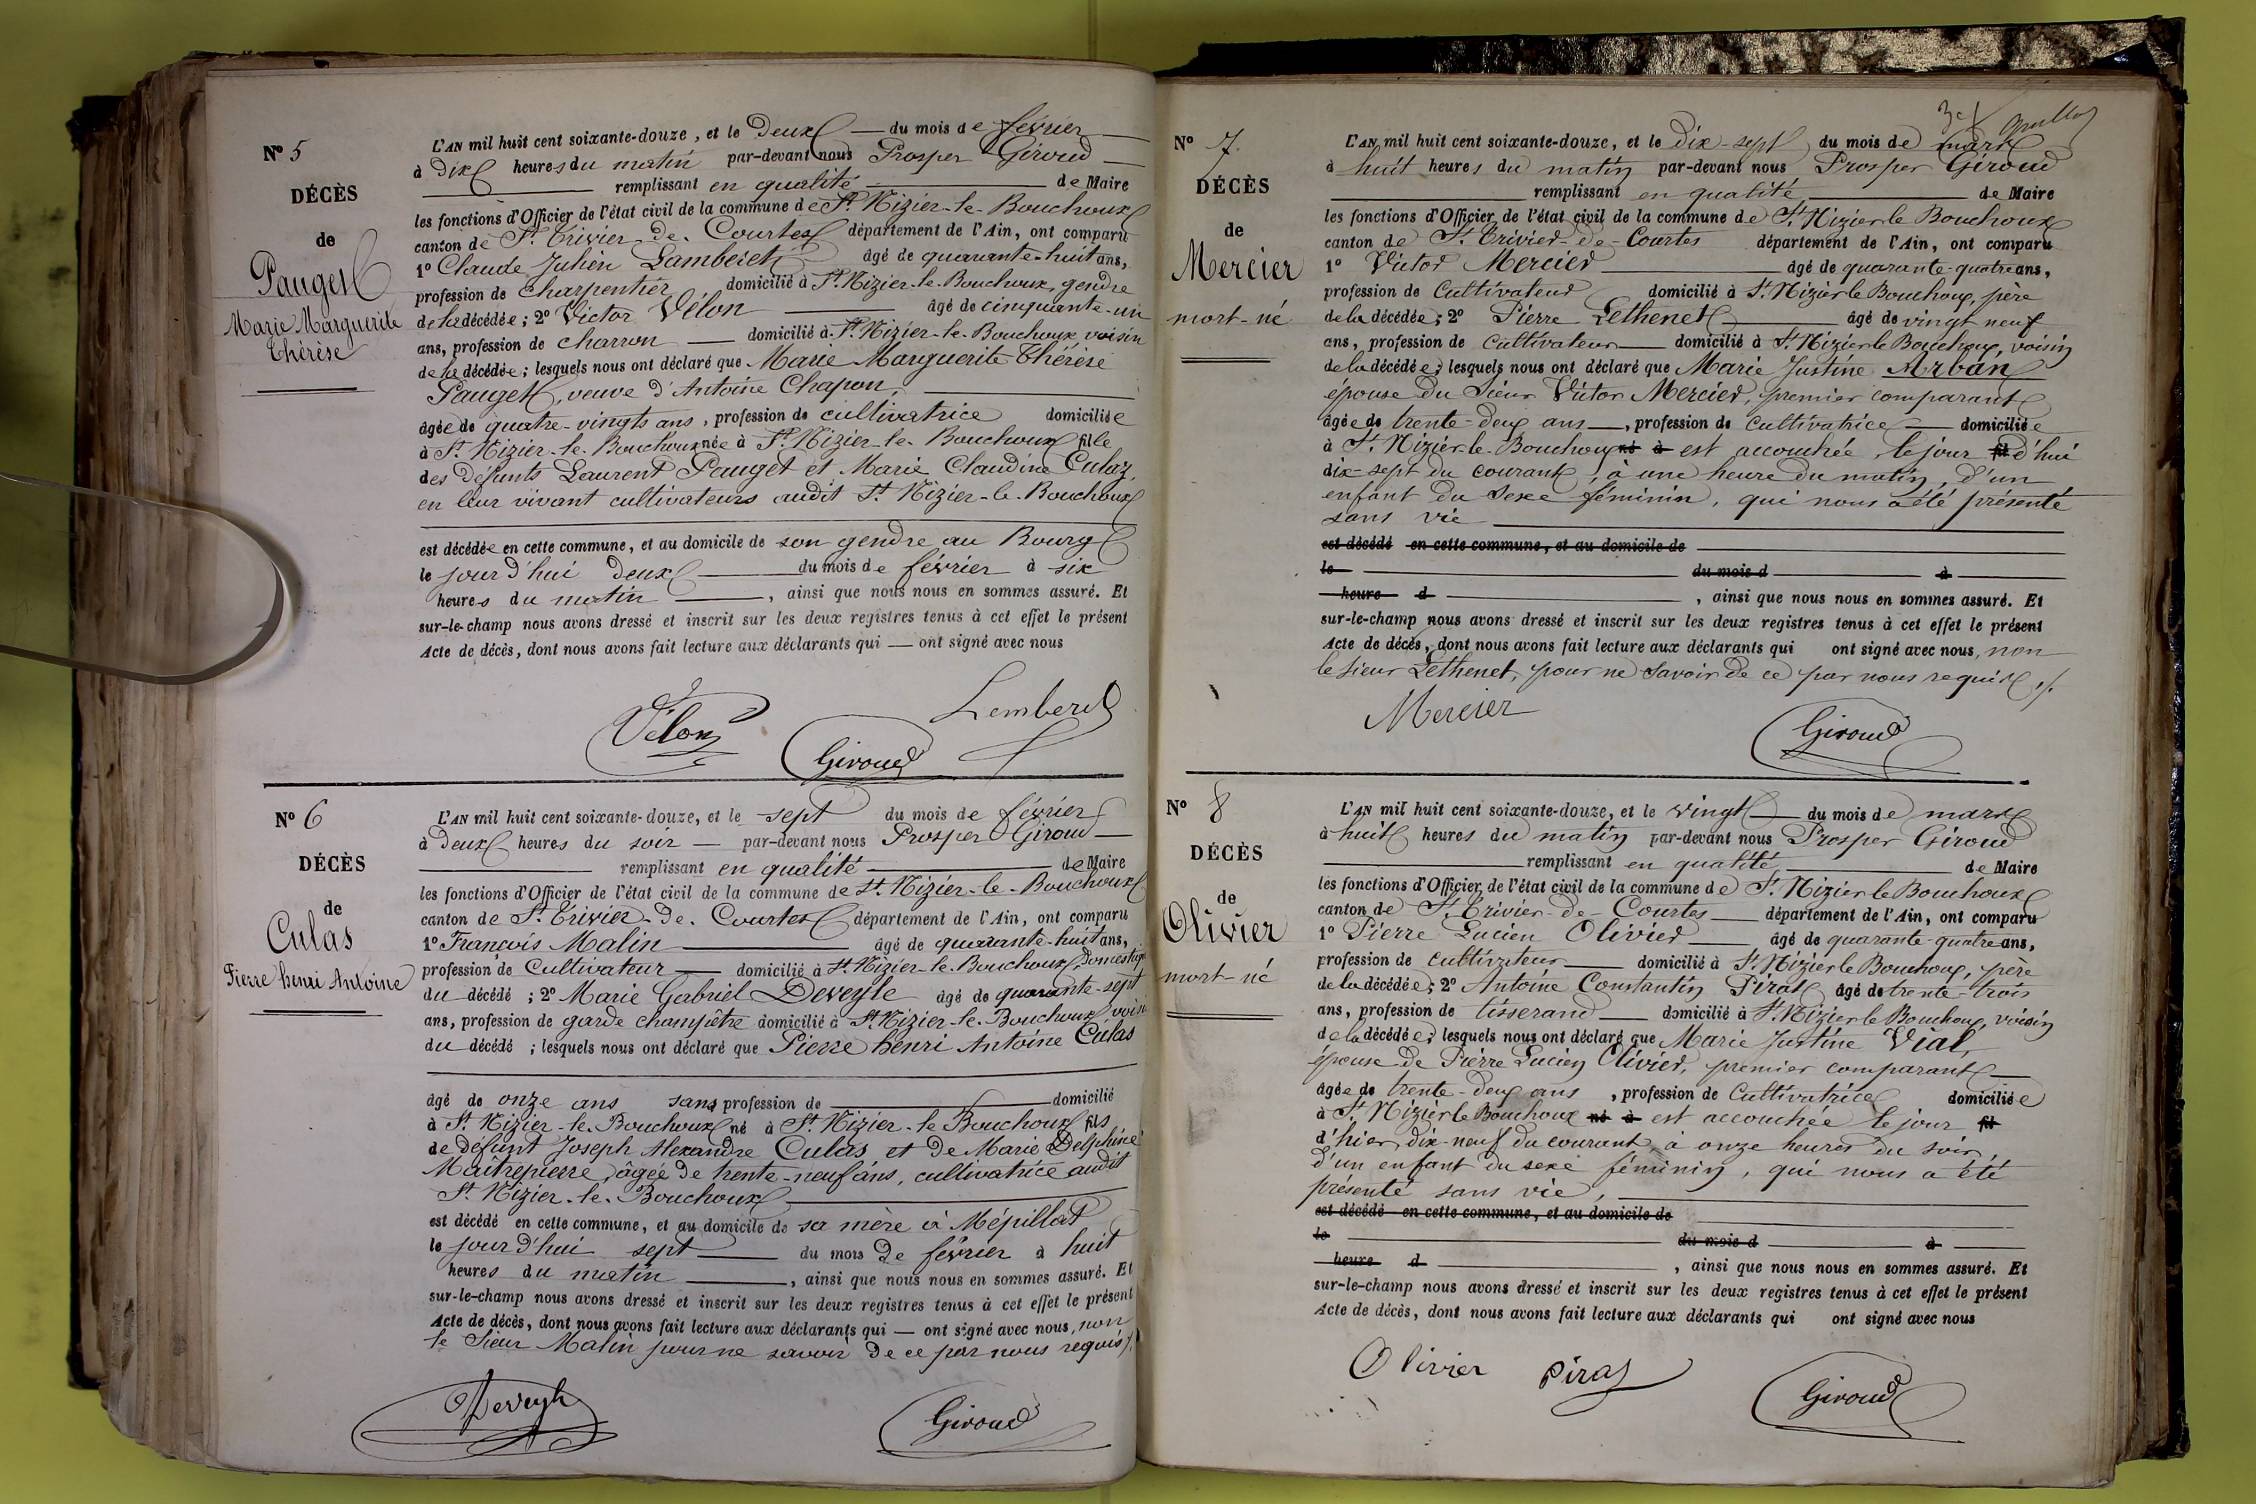 Nº 5
DÉCÈS
de
Pauget
Marie Marguerite
Thérèse
L'AN mil huit cent soixante-douze, et le deux — du mois de février —
à dix heures du matin par-devant nous Prosper Giroud —
remplissant en qualité de Maire
les fonctions d'Officier de l'état civil de la commune de St Nizier-le-Bouchoux
canton de St Trivier-de-Courtes département de l'Ain, ont comparu
1º Claude Julien Lamberet âgé de quarante-huit ans,
profession de charpentier domicilié à St Nizier-le-Bouchoux, gendre
de la décédée; 2º Victor Vélon âgé de cinquante-un
ans, profession de charron — domicilié à St Nizier-le-Bouchoux voisin
de la décédée; lesquels nous ont déclaré que Marie Marguerite Thérèse
Pauget, veuve d'Antoine Chapon,
âgée de quatre-vingts ans, profession de cultivatrice domiciliée
à St Nizier-le-Bouchoux née à St Nizier-le-Bouchoux fille
des défunts Laurent Pauget et Marie Claudine Culaz,
en leur vivant cultivateurs audit St Nizier-le-Bouchoux
est décédée en cette commune, et au domicile de son gendre au Bourg
le jour d'hui deux — du mois de février à six
heures du matin —, ainsi que nous nous en sommes assuré. Et
sur-le-champ nous avons dressé et inscrit sur les deux registres tenus à cet effet le présent
Acte de décès, dont nous avons fait lecture aux déclarants qui — ont signé avec nous
Vélon Giroud Lemberet
Nº 6
DÉCÈS
de
Culas
Pierre henri Antoine
L'AN mil huit cent soixante-douze, et le sept du mois de février
à deux heures du soir — par-devant nous Prosper Giroud —
remplissant en qualité de Maire
les fonctions d'Officier de l'état civil de la commune de St Nizier-le-Bouchoux
canton de St Trivier-de-Courtes département de l'Ain, ont comparu
1º François Malin — âgé de quarante-huit ans,
profession de Cultivateur — domicilié à St Nizier-le-Bouchoux, domestique
du décédé; 2º Marie Gabriel Deveyle âgé de quarante-sept
ans, profession de garde champêtre domicilié à St Nizier-le-Bouchoux voisin
du décédé; lesquels nous ont déclaré que Pierre henri Antoine Culas
âgé de onze ans sans profession de — domicilié
à St Nizier-le-Bouchoux né à St Nizier-le-Bouchoux fils
de défunt Joseph Alexandre Culas et de Marie Delphine
Maîtrepierre, âgée de trente-neuf ans, cultivatrice audit
St Nizier-le-Bouchoux
est décédé en cette commune, et au domicile de sa mère à Mépillat
le jour d'hui sept — du mois de février à huit
heures du matin —, ainsi que nous nous en sommes assuré. Et
sur-le-champ nous avons dressé et inscrit sur les deux registres tenus à cet effet le présent
Acte de décès, dont nous avons fait lecture aux déclarants qui — ont signé avec nous, non
le Sieur Malin pour ne savoir de ce par nous requis ./.
Deveyle Giroud
Nº 7.
DÉCÈS
de
Mercier
mort-né
L'AN mil huit cent soixante-douze, et le dix-sept du mois de mars
à huit heures du matin par-devant nous Prosper Giroud
remplissant en qualité de Maire
les fonctions d'Officier de l'état civil de la commune de St Nizier le Bouchoux
canton de St Trivier-de-Courtes département de l'Ain, ont comparu
1º Victor Mercier — âgé de quarante-quatre ans,
profession de Cultivateur domicilié à St Nizier le Bouchoux, père
de la décédée; 2º Pierre Lethenet — âgé de vingt neuf
ans, profession de Cultivateur — domicilié à St Nizier le Bouchoux, voisin
de la décédée; lesquels nous ont déclaré que Marie Justine Arban
épouse du Sieur Victor Mercier, premier comparant
âgée de trente-deux ans —, profession de Cultivatrice — domiciliée
à St Nizier-le-Bouchoux né à est accouchée le jour fil d'hui
dix-sept du courant, à une heure du matin, d'un
enfant du sexe féminin, qui nous a été présenté
sans vie
est décédé en cette commune, et au domicile de
le — du mois d — à
heure d —, ainsi que nous nous en sommes assuré. Et
sur-le-champ nous avons dressé et inscrit sur les deux registres tenus à cet effet le présent
Acte de décès, dont nous avons fait lecture aux déclarants qui ont signé avec nous, non
le sieur Lethenet, pour ne savoir de ce par nous requis ./.
Mercier Giroud
Nº 8
DÉCÈS
de
Olivier
mort-né
L'AN mil huit cent soixante-douze, et le vingt — du mois de mars
à huit heures du matin par-devant nous Prosper Giroud
remplissant en qualité de Maire
les fonctions d'Officier de l'état civil de la commune de St Nizier le Bouchoux
canton de St Trivier-de-Courtes — département de l'Ain, ont comparu
1º Pierre Lucien Olivier — âgé de quarante-quatre ans,
profession de cultivateur — domicilié à St Nizier le Bouchoux, père
de la décédée; 2º Antoine Constantin Piras âgé de trente-trois
ans, profession de tisserand — domicilié à St Nizier le Bouchoux, voisin
de la décédée; lesquels nous ont déclaré que Marie Justine Vial,
épouse de Pierre Lucien Olivier, premier comparant —
âgée de trente-deux ans, profession de Cultivatrice domiciliée
à St Nizier le Bouchoux né à est accouchée le jour fil
d'hier, dix-neuf du courant, à onze heures du soir,
d'un enfant du sexe féminin, qui nous a été
présenté sans vie,
est décédé en cette commune, et au domicile de
le — du mois d — à
heure d —, ainsi que nous nous en sommes assuré. Et
sur-le-champ nous avons dressé et inscrit sur les deux registres tenus à cet effet le présent
Acte de décès, dont nous avons fait lecture aux déclarants qui ont signé avec nous
Olivier Piras Giroud